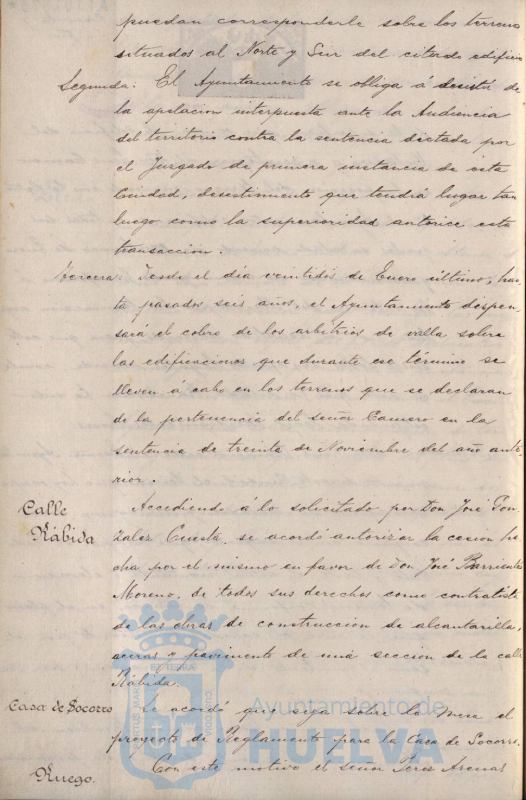 puedan corresponderle sobre los terrenos
situados al Norte y Sur del citado edificio
Segunda: El Ayuntamiento se obliga á desistir de
la apelacion interpuesta ante la Audiencia
del territorio contra la sentencia dictada por
el Juzgado de primera instancia de esta
Ciudad, desistimiento que tendrá lugar tan
luego como la superioridad autorice esta
transaccion.
Tercera: Desde el dia veintidos de Enero último, has-
ta pasados seis años, el Ayuntamiento dispen-
sará el cobro de los arbitrios de valla sobre
las edificaciones que durante ese término se
lleven á cabo en los terrenos que se declaran
de la pertenencia del señor Camero en la
sentencia de treinta de Noviembre del año ante-
rior.
Calle Rábida
Accediendo á lo solicitado por Don José Gon-
zalez Cuesta, se acordó autorizar la cesion he-
cha por el mismo en favor de Don José Barrientos
Moreno, de todos sus derechos como contratista
de las obras de construccion de alcantarilla,
aceras y pavimento de una seccion de la calle
Rábida.
Casa de Socorro
Se acordó que siga sobre la mesa el
proyecto de Reglamento para la Casa de Socorro.
Ruego.
Con este motivo el señor Peres Arenas
Ayuntamiento de
HUELVA